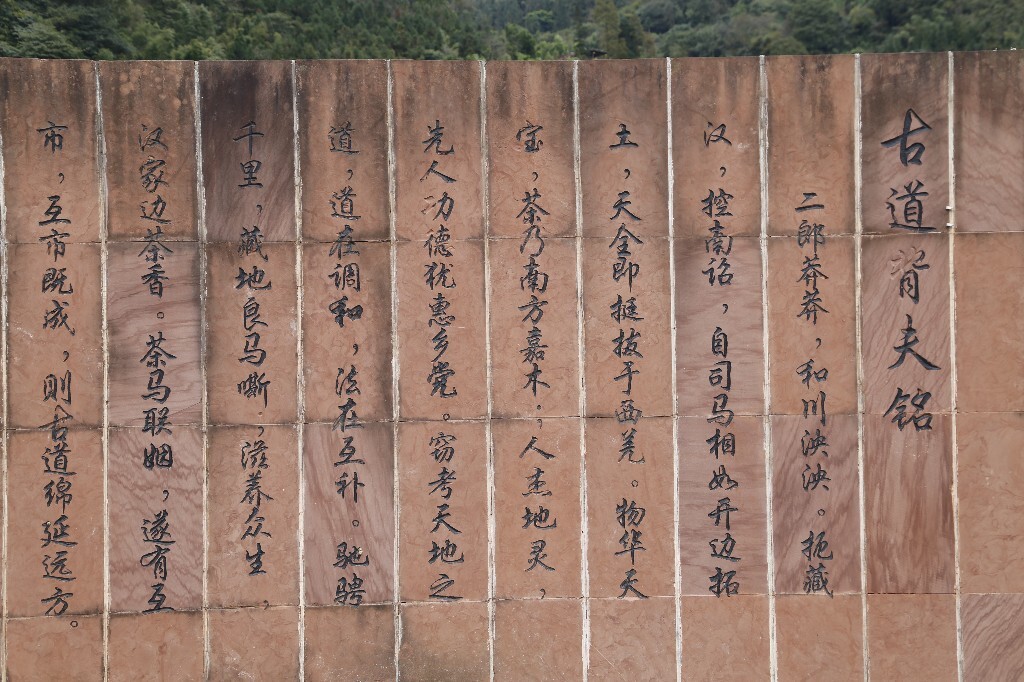 古道背夫铭
二郎莽莽，和川泱泱。扼藏
汉，控南诏，自司马相如开边拓
土，天全即挺拔于西羌。物华天
宝，茶乃南方嘉木，人杰地灵，
先人功德犹惠乡党。窃考天地之
道，道在调和，法在互补。驰骋
千里，藏地良马嘶，滋养众生，
汉家边茶香。茶马联姻，遂有互
市，互市既成，则古道绵延远方。